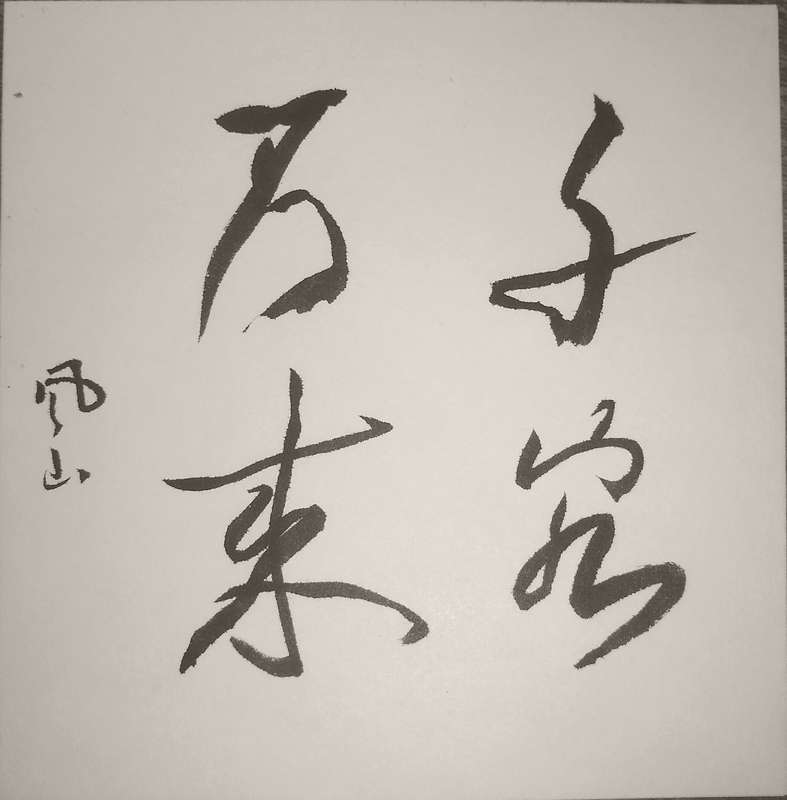 千客
万来
風山